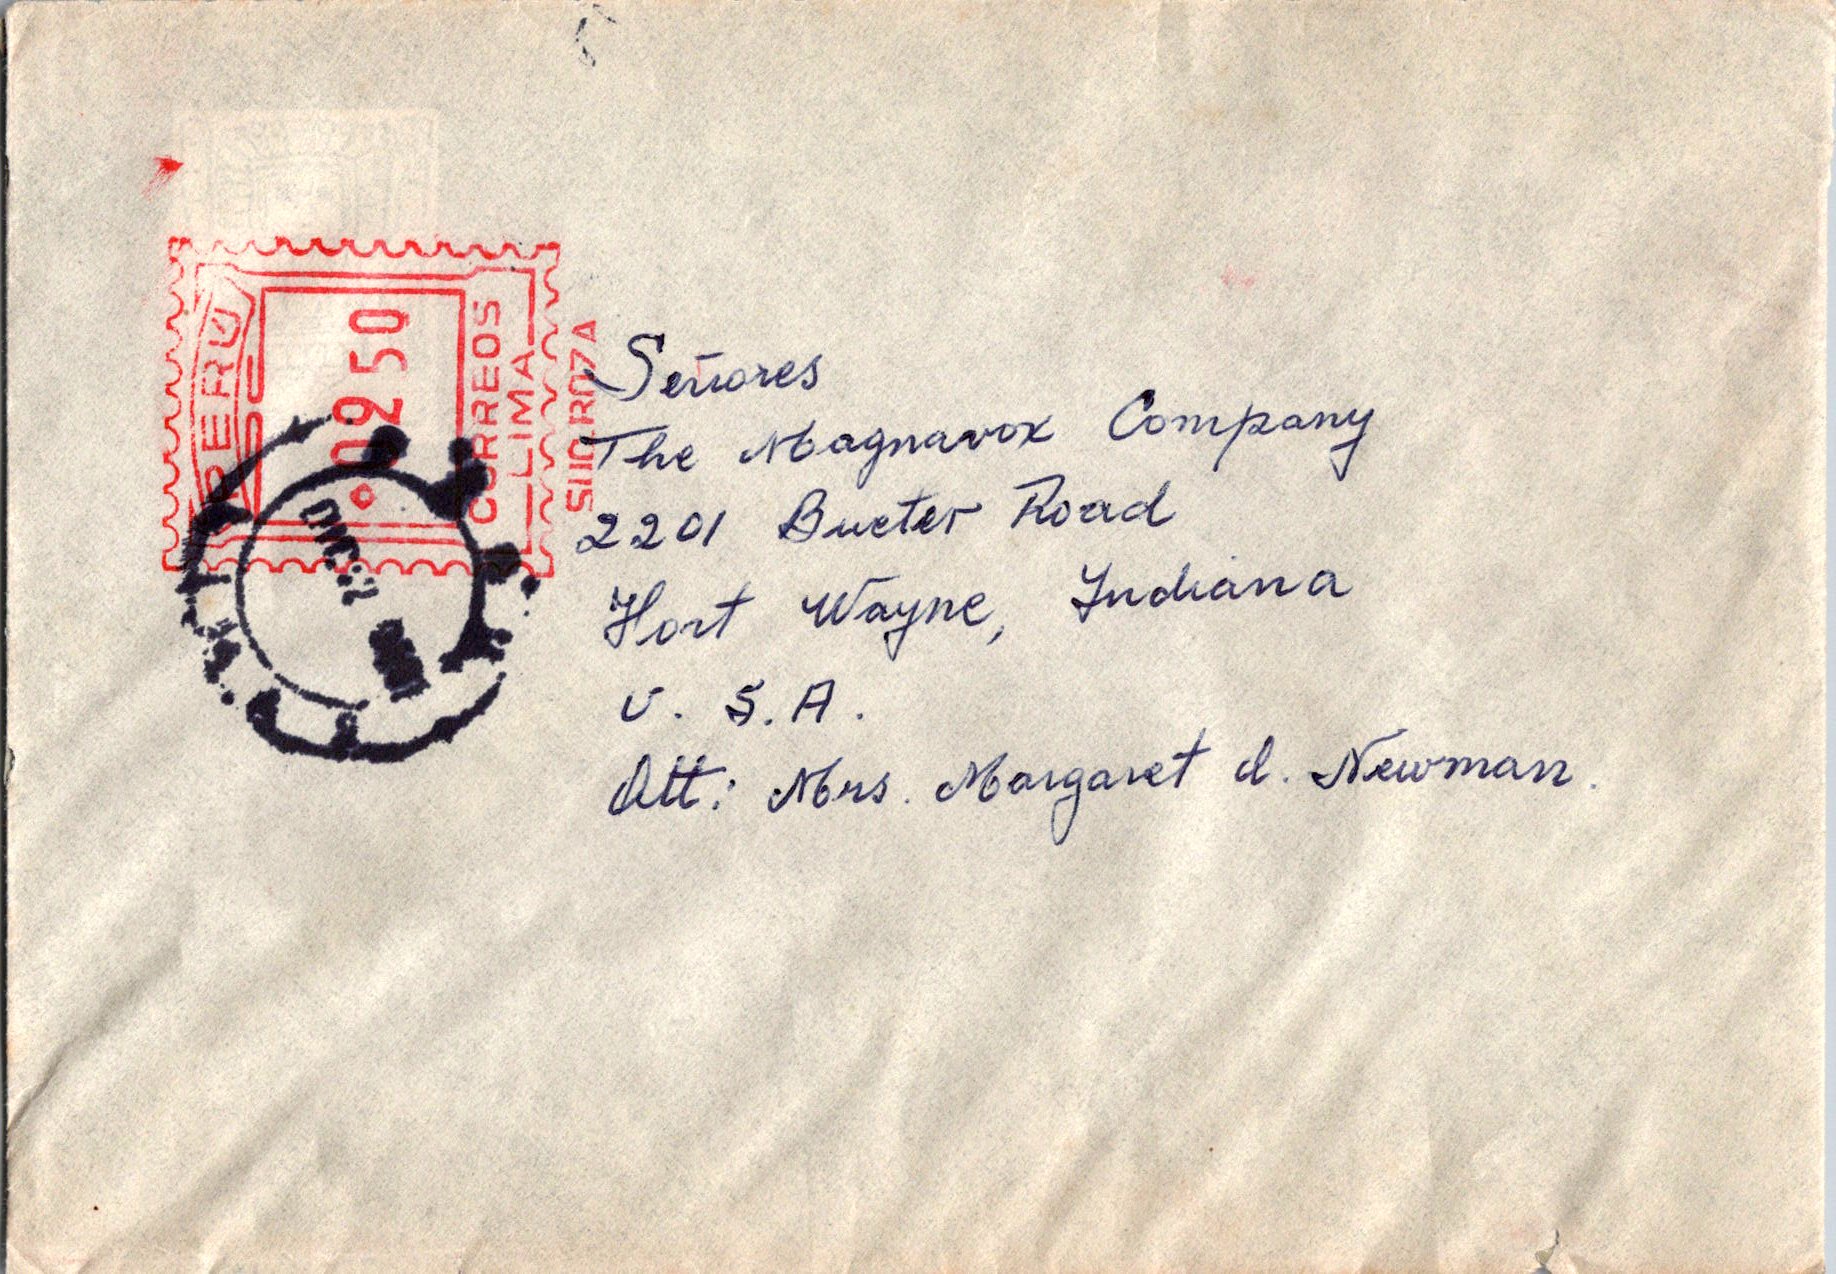 PERU
02 50
CORREOS
LIMA
DIC.2
Señores
The Magnavox Company
2201 Bueter Road
Fort Wayne, Indiana
U. S. A.
Att: Mrs. Margaret d. Newman.